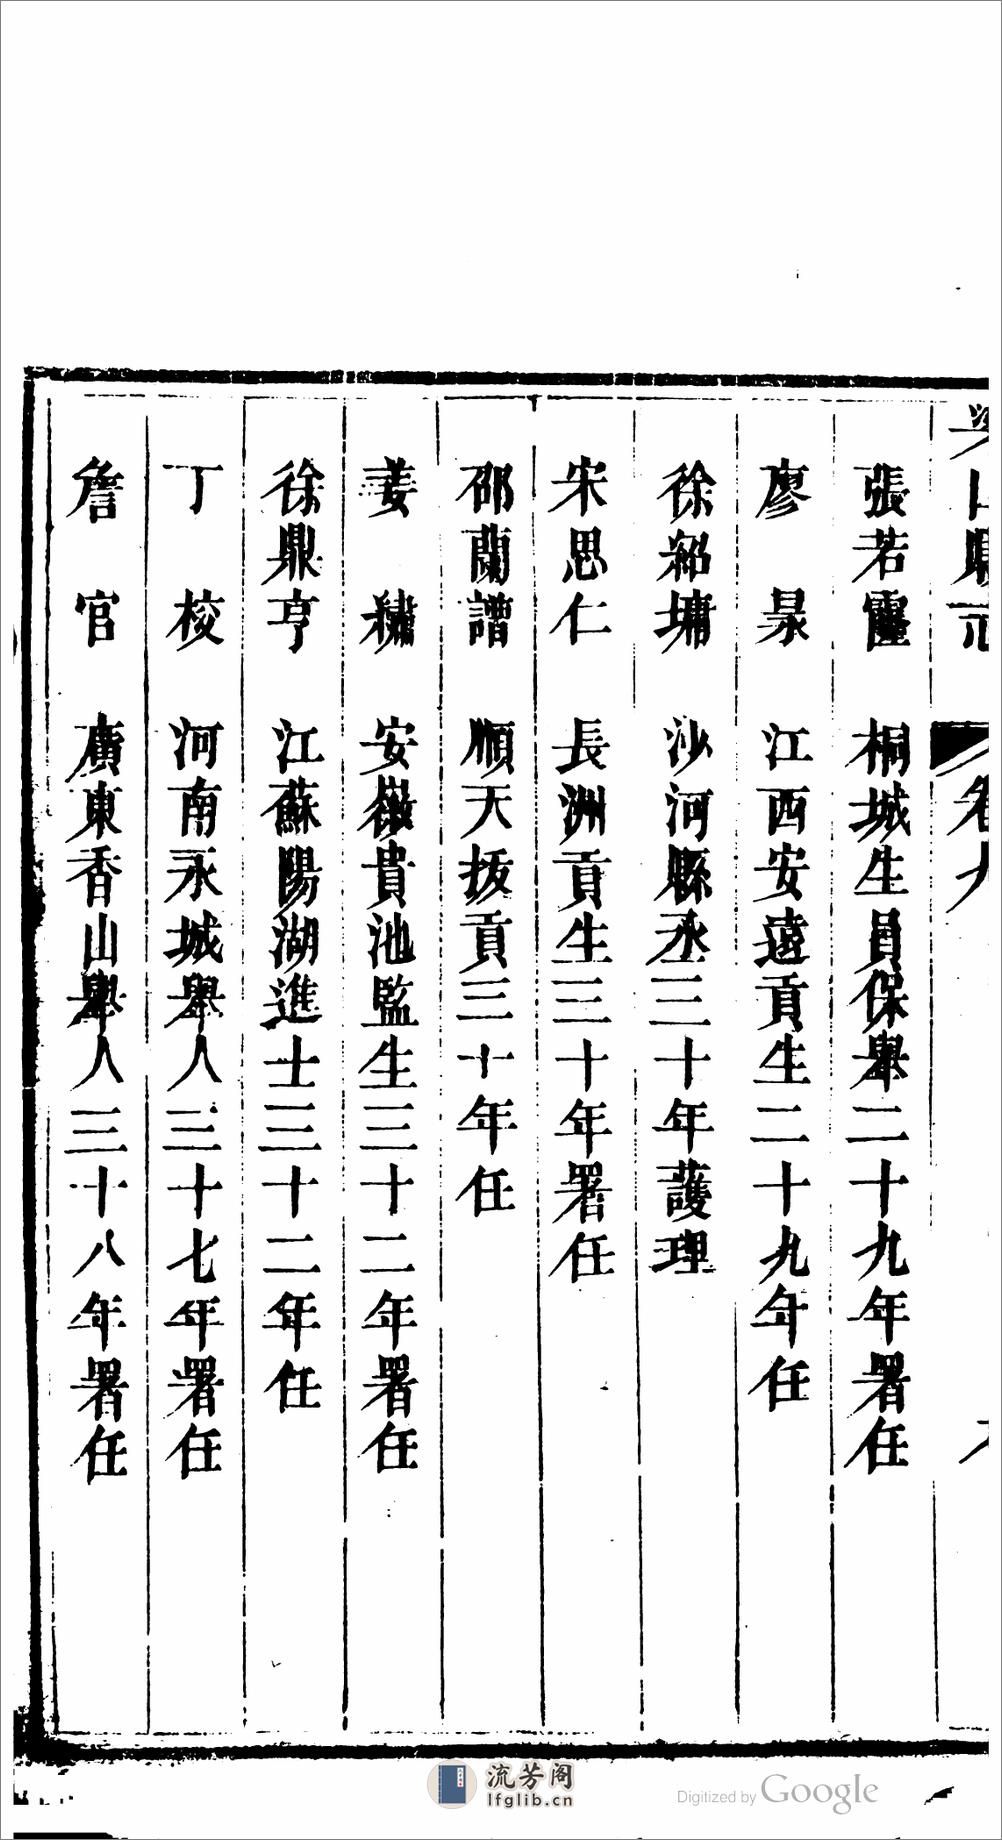 山縣志
卷九
張若靈 桐城生員保舉二十九年署任
廖杲 江西安遠貢生二十九年任
徐邦墉 沙河縣丞三十年護理
宋思仁 長洲貢生三十年署任
邵蘭譜 順天拔貢三十年任
姜繡 安徽貴池監生三十二年署任
徐鼎亨 江蘇陽湖進士三十二年任
丁校 河南永城舉人三十七年署任
詹官 廣東香山舉人三十八年署任
流芳阁
lfglib.cn
Digitized by Google